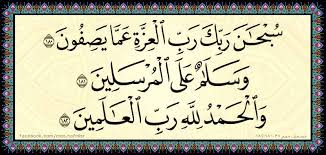 سُبْحَٰنَ رَبِّكَ رَبِّ ٱلْعِزَّةِ عَمَّا يَصِفُونَ ١٨٠
وَسَلَٰمٌ عَلَى ٱلْمُرْسَلِينَ ١٨١
وَٱلْحَمْدُ لِلَّهِ رَبِّ ٱلْعَٰلَمِينَ ١٨٢